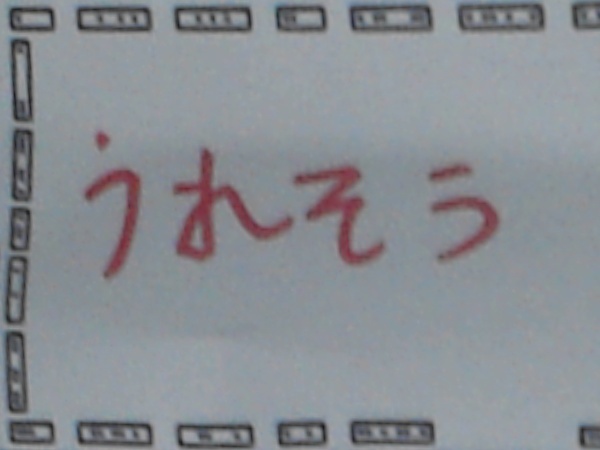 うれそう